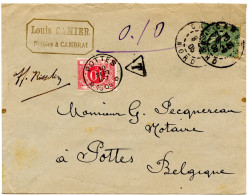 Louis CAMIER
Notaire à CAMBRAI
0.10
T
POTTES
10
CAMBRAI
NORD
Monsieur G. Jacquereau
Notaire
à Pottes
Belgique